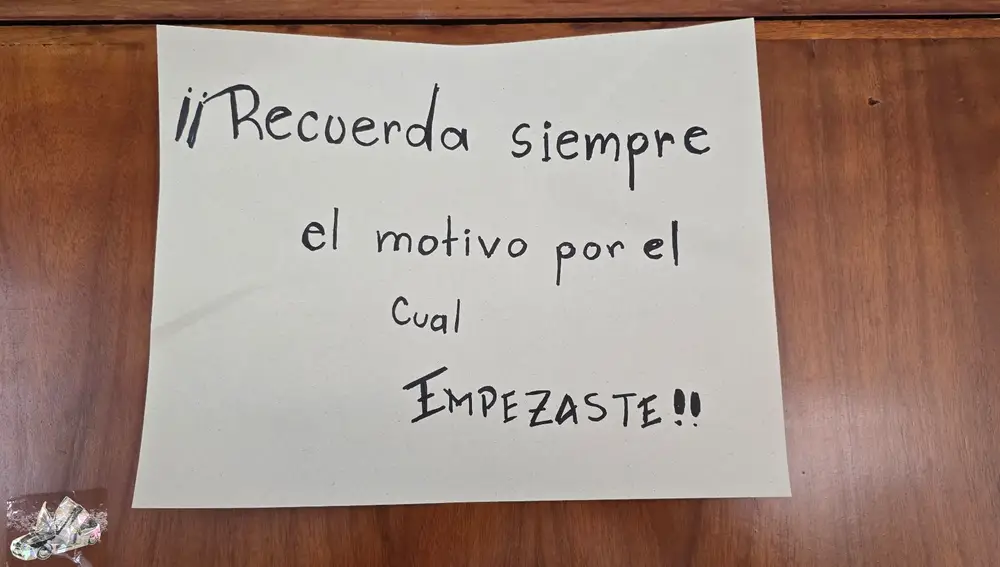 ¡¡Recuerda siempre
el motivo por el
cual
EMPEZASTE!!